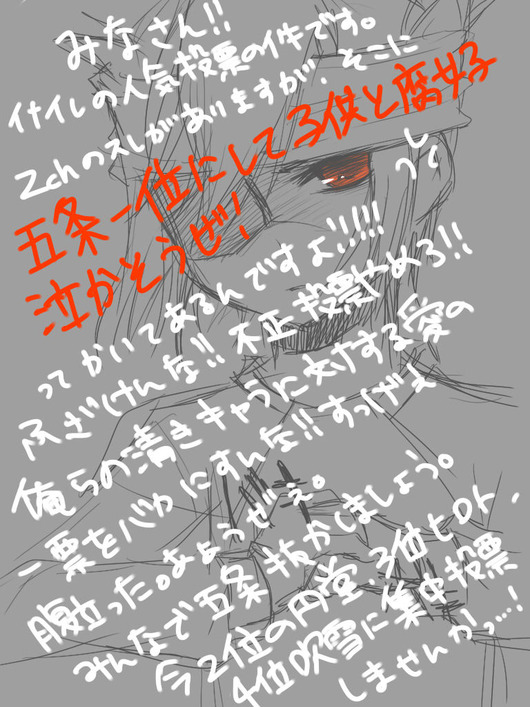 みなさん!!
イナイレの人気投票のイキです。
2chのスレがありますが、そこに
五条一位にして子供と腐女子
泣かそうぜ!
ってかいてあるんですよ!!!!!
ふざけんな!!不正投票やめろ!!
俺らの清きキャラに対する愛の
一票をバカにすんな!!すっげえ
腹立った。あようぜぇ。
みんなで五条抜かしましょう。
今2位の円堂、3位ヒロト、
4位吹雪に集中投票
しませんかっ…!